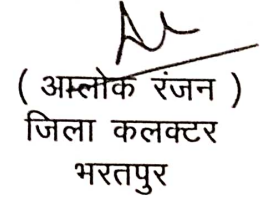 ( अम्लोक रंजन )
जिला कलक्टर
भरतपुर